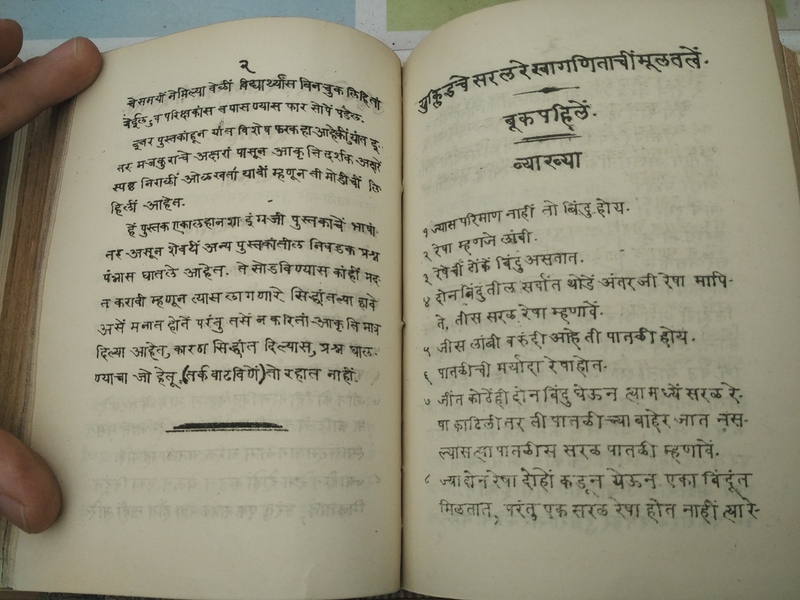 २
चे समयीं नेमिल्या वेळीं विद्यार्थ्यांस बिनचुक लिहितां
येईल, व परिक्षकांस तपासण्यास फार सोपें पडेल.
दूसर पुस्तकांहून यांत विशेष फरक हा आहे कीं, यांत दू-
तर मजकुराचे अक्षरां पासून आकृति दर्शक अक्षरें
स्पष्ट निराळीं ओळखतां यावीं म्हणून ती मोडीचीं लि-
हिलीं आहेत.
हें पुस्तक एका लहानशा इंग्रजी पुस्तकाचें भाषां-
तर असून शेवटीं अन्य पुस्तकांतील निवडक प्रश्न
पंन्नास घातले आहेत. ते सोडविण्यास कांहीं मद-
त करावी म्हणून त्यास लागणारे सिद्धांत ल्या हावे
असें मनात होतें परंतु तसें न करितां आकृति मात्र
दिल्या आहेत, कारण सिद्धांत दिल्यास, प्रश्न घाल-
ण्याचा जो हेतू, (तर्क वाढविणें) तो रहात नाहीं.
युक्लिडचे सरल रेखागणिताचीं मूलतत्वें.
बूक पहिलें.
व्याख्या
१ ज्यास परिमाण नाहीं तो बिंदु होय.
२ रेषा म्हणजे लांबी.
३ रेषेचीं टोंकें बिंदु असतात.
४ दोन बिंदुतील सर्वांत थोडें अंतर जी रेषा मापि-
ते, तीस सरळ रेषा म्हणावें.
५ जीस लांबी व रुंदी आहे ती पातळी होय.
६ पातळीची मर्यादा रेषा होत.
७ जींत कोठेंही दोन बिंदु घेऊन त्यामध्यें सरळ रे-
षा काढिली तर ती पातळीच्या बाहेर जात नस-
ल्यास त्या पातळीस सरळ पातळी म्हणावें.
८ ज्या दोन रेषा दोहों कडून येऊन एका बिंदूंत
मिळतात, परंतु एक सरळ रेषा होत नाहीं त्या रे-